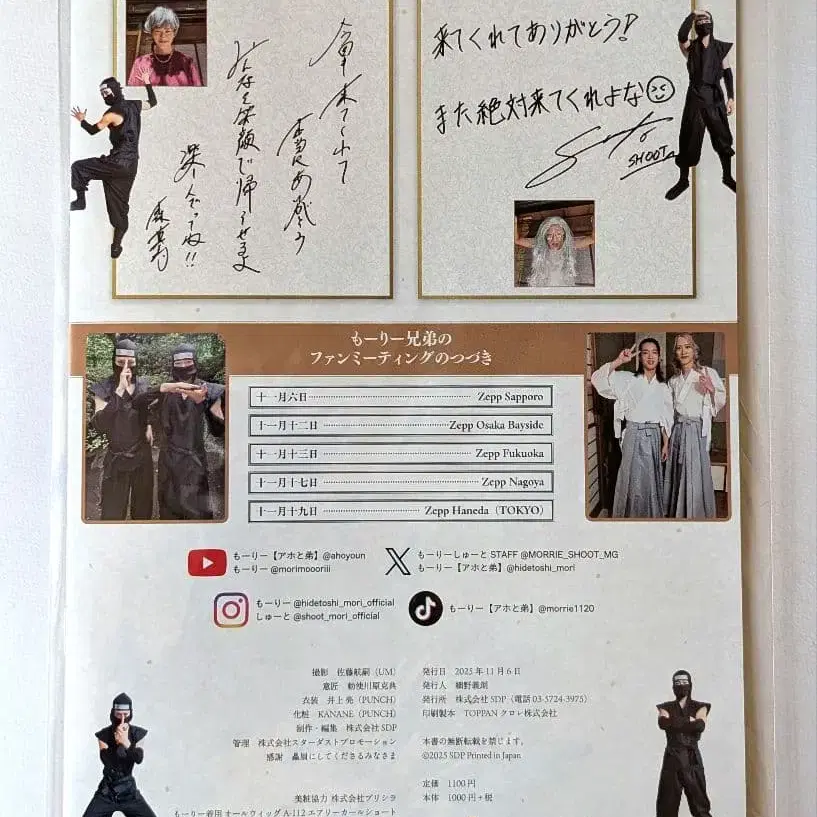 今日は来てくれて
本当にありがとう
みんなを笑顔で帰らせるよ
楽しんでってね!!
来てくれてありがとう!
また絶対来てくれよな
SHOOT
もーりー兄弟の
ファンミーティングのつづき
十一月六日 Zepp Sapporo
十一月十二日 Zepp Osaka Bayside
十一月十三日 Zepp Fukuoka
十一月十七日 Zepp Nagoya
十一月十九日 Zepp Haneda(TOKYO)
もーりー【アホと弟】@ahoyoun
もーりー @morimoooriii
もーりーしゅーと STAFF @MORRIE_SHOOT_MG
もーりー【アホと弟】@hidetoshi_mori
もーりー @hidetoshi_mori_official
しゅーと @shoot_mori_official
もーりー【アホと弟】@morrie1120
撮影 佐藤航嗣(UM)
意匠 勅使川原克典
衣装 井上亮(PUNCH)
化粧 KANANE(PUNCH)
制作・編集 株式会社SDP
管理 株式会社スターダストプロモーション
感謝 贔屓にしてくださるみなさま
美粧協力 株式会社プリシラ
もーりー着用 オールウィッグ A-112 エアリーカールショート
発行日 2025年11月6日
発行人 細野義朗
発行所 株式会社SDP(電話 03-5724-3975)
印刷製本 TOPPANクロレ株式会社
本書の無断転載を禁じます。
©2025 SDP Printed in Japan
定価 1100円
本体 1000円+税